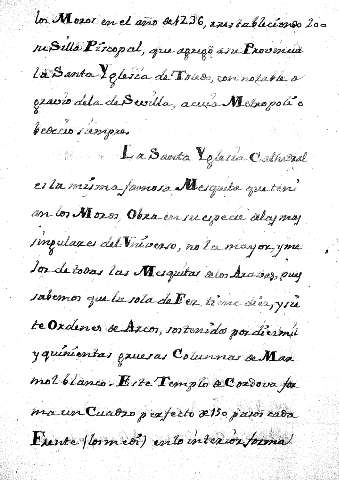 los Moros en el año de 1236, restableciendo
su Silla Piscopal, que agregó a su Provincia
la Santa Yglesia de Toledo, con notable a
gravio de la de Sevilla, a cuia Metropoli o
bedecio siempre.
La Santa Yglesia Cathedral
es la misma famosa Mesquita que teni
an los Moros, Obra en su especie de las mas
singulares del Vniverso, no la mayor y me
lor de todas las Mesquitas de los Arabes, pues
sabemos que la sola de Fez tiene diez, y sie
te Ordenes de Arcos, sostenidos por diez mil
y quinientas gruesas Columnas de Mar
mol blanco. Este Templo de Cordova for
ma un Cuadro perfecto de 150 pasos cada
Frente (los medi) en lo interior forma